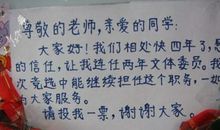 尊敬的老师,亲爱的同学:
大家好!我们相处快四年了,
的信任,让我连任两年文体委员。我
次竞选中能继续担任这个职务,一
为大家服务。
请投我一票,谢谢大家。